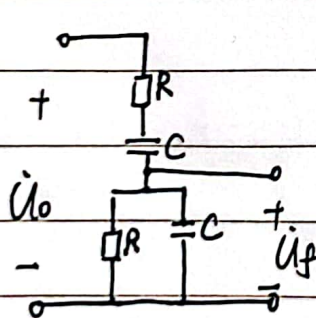 R
+
C
U̇o
+
R
C
U̇f
-
-